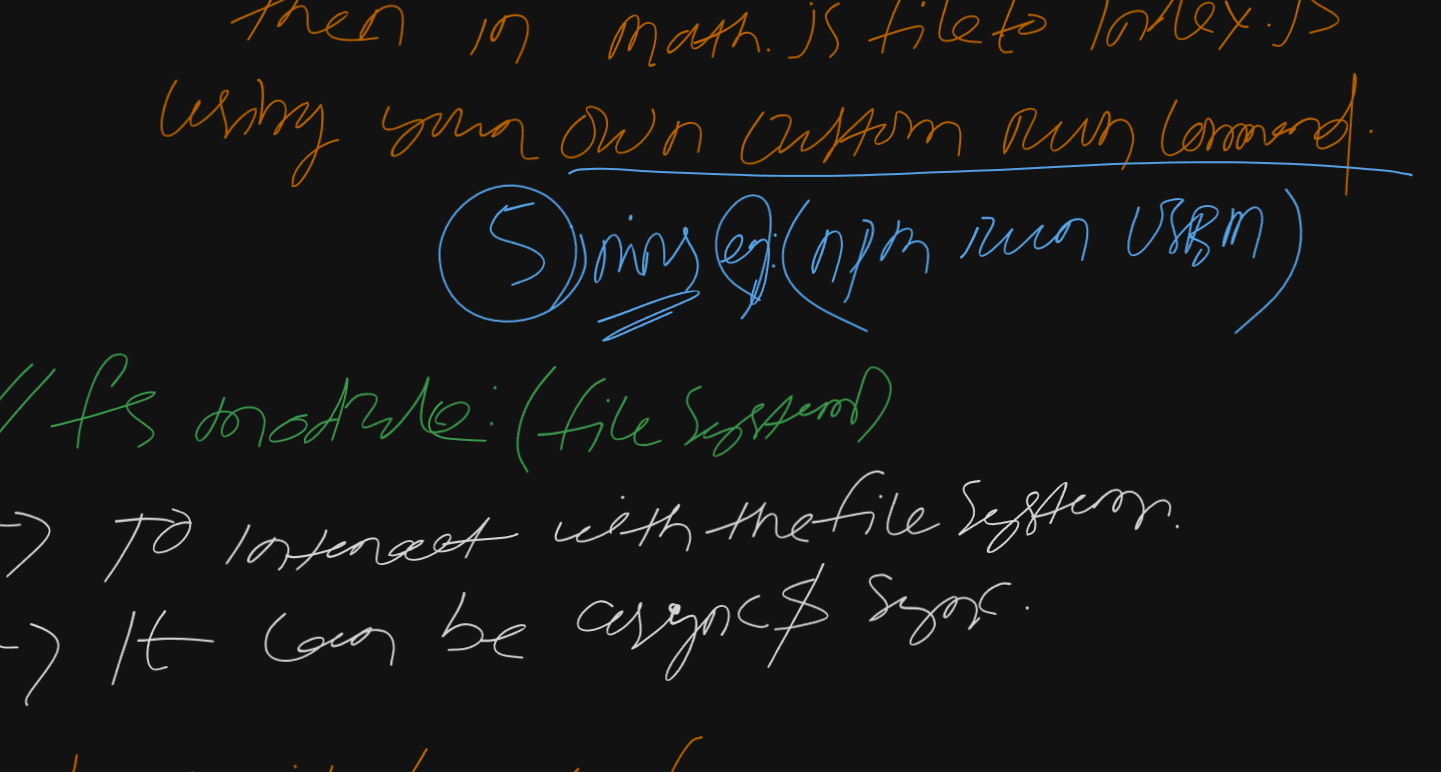 then in math.js file to index.js
using your own custom run command.
5 mins eg: (npm run USBM)
// fs module: (file system)
-> To interact with the file system.
-> It can be async & sync.